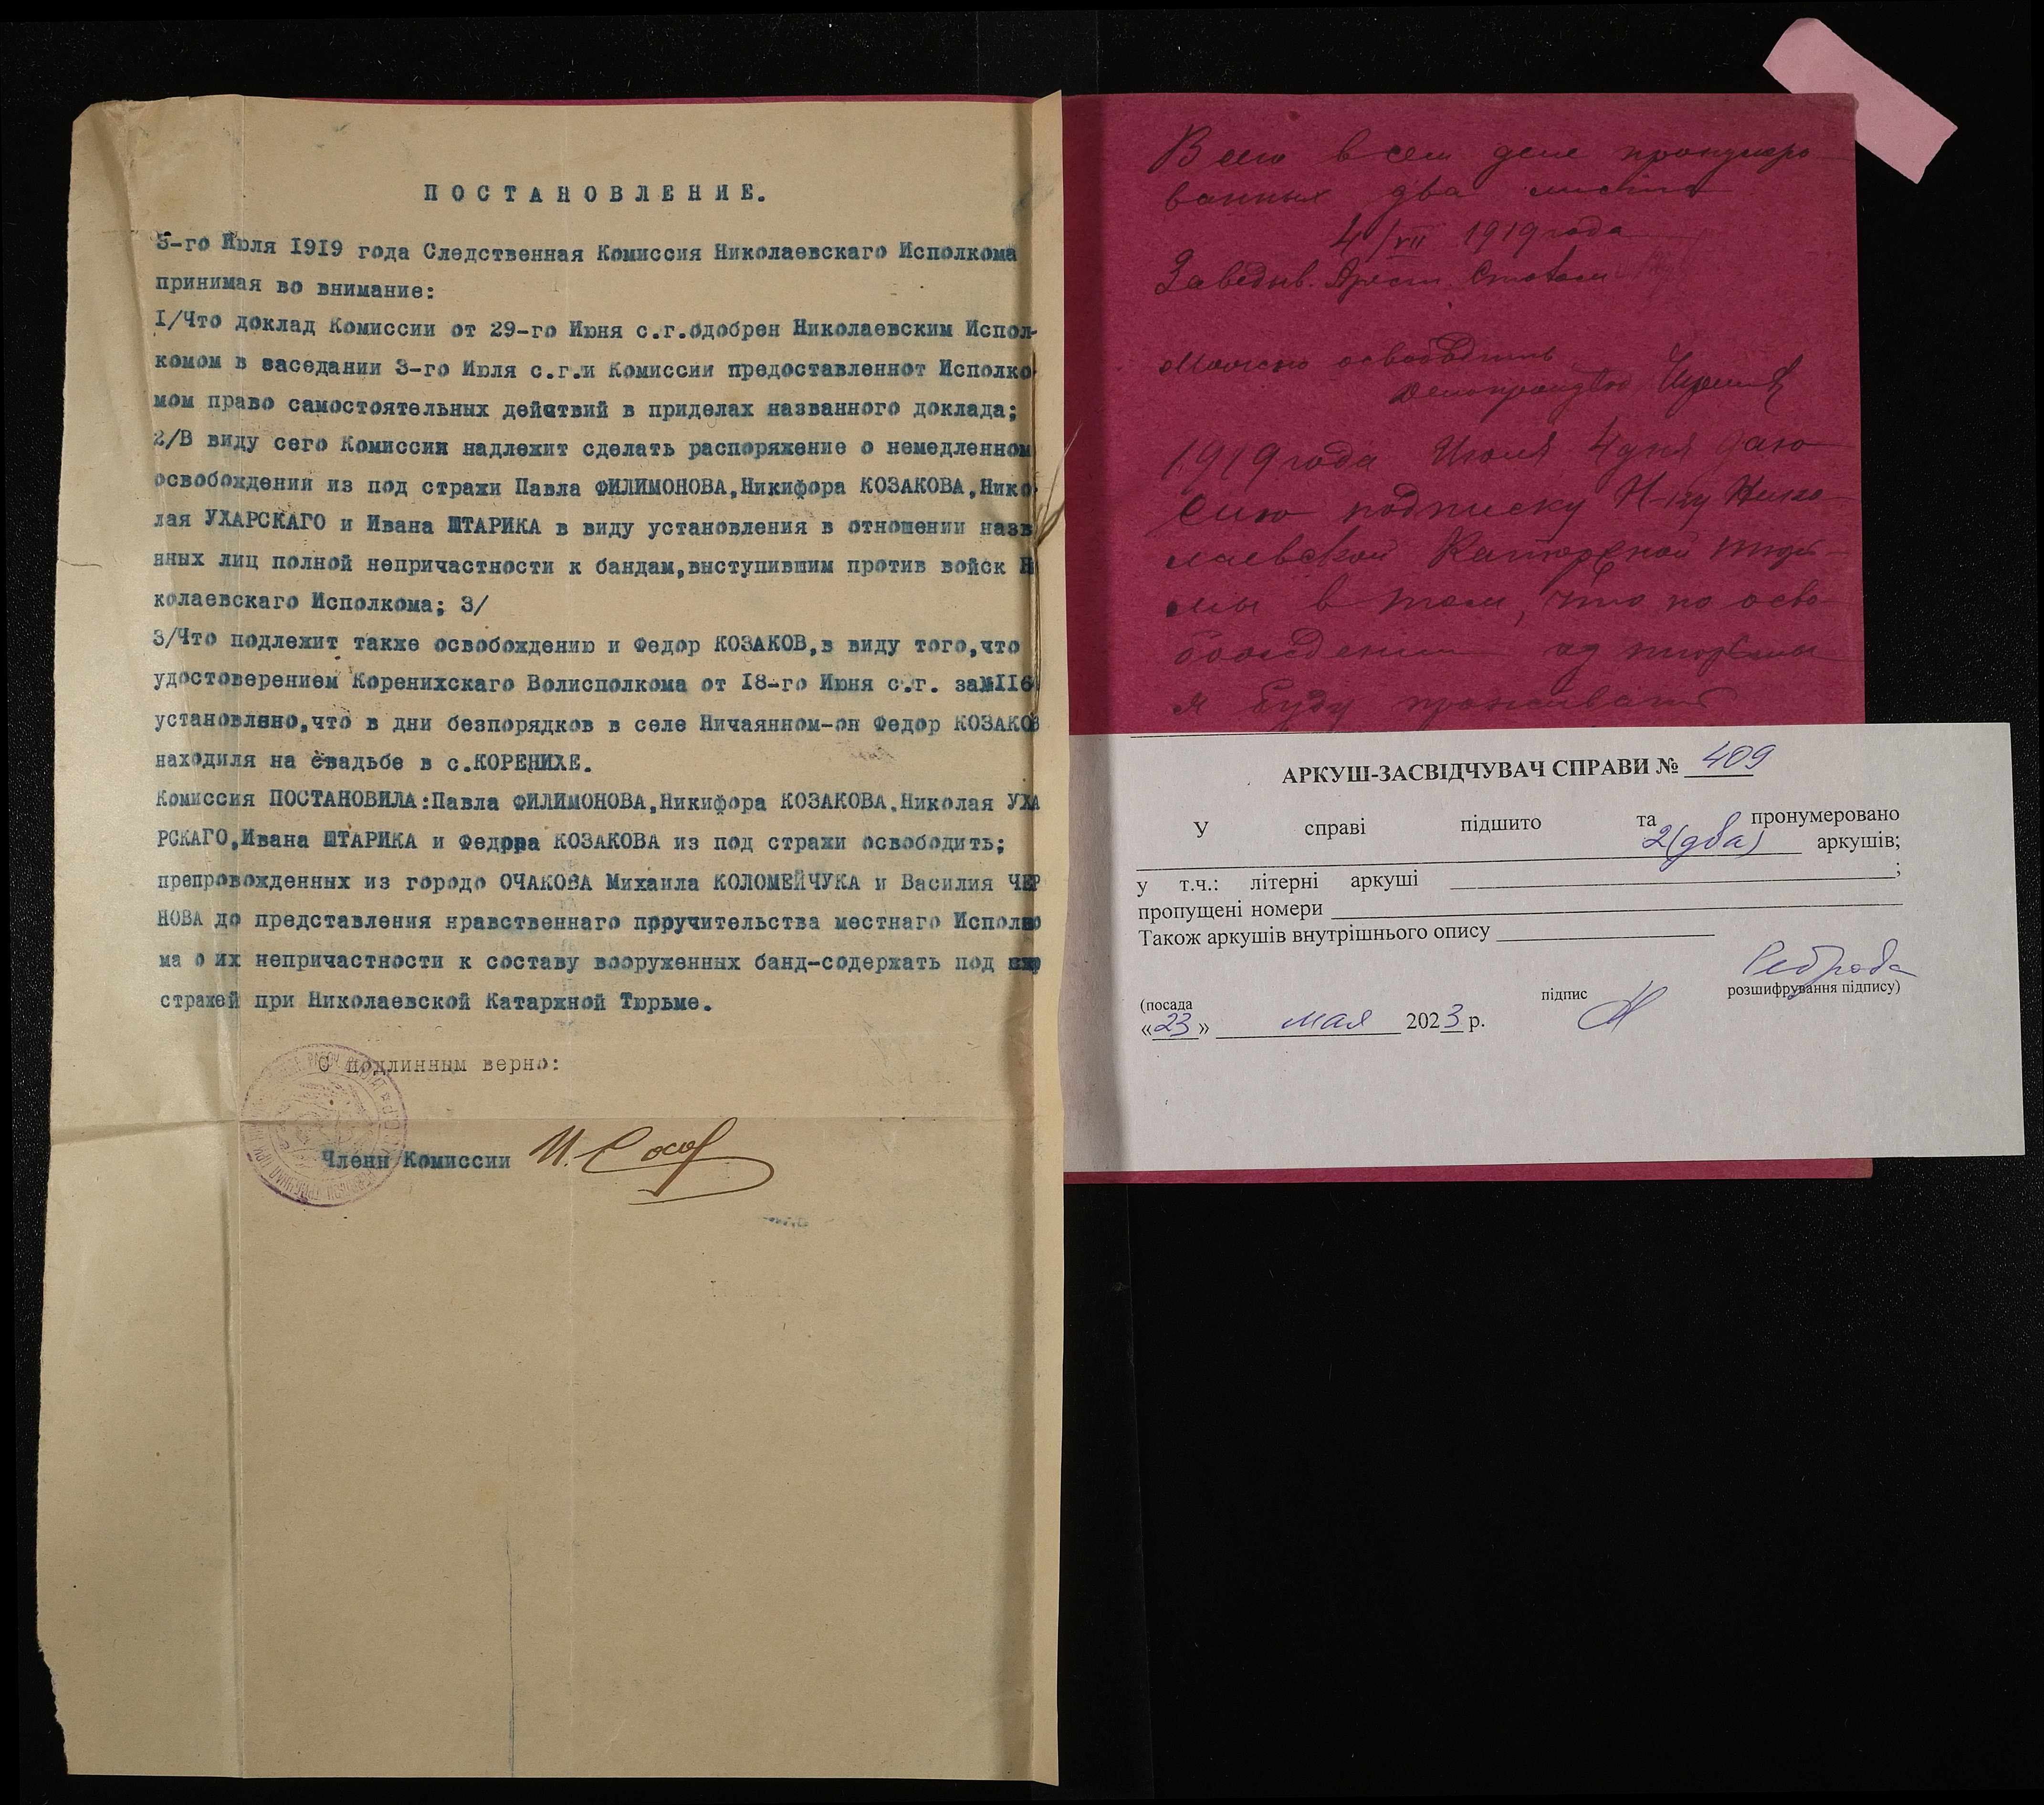 ПОСТАНОВЛЕНИЕ.
3-го Июля 1919 года Следственная Комиссия Николаевскаго Исполкома
принимая во внимание:
I/Что доклад Комиссии от 29-го Июня с.г.одобрен Николаевским Испол-
комом в заседании 3-го Июля с.г.и Комиссии предоставленнот Исполко
мом право самостоятельных действий в приделах названного доклада;
2/В виду сего Комиссии надлежит сделать распоряжение о немедленном
освобождении из под стражи Павла ФИЛИМОНОВА,Никифора КОЗАКОВА,Нико
лая УХАРСКАГО и Ивана ШТАРИКА в виду установления в отношении назв
нных лиц полной непричастности к бандам,выступившим против войск Н
колаевскаго Исполкома; 3/
3/Что подлежит также освобождению и Федор КОЗАКОВ,в виду того,что
удостоверением Коренихскаго Волисполкома от 18-го Июня с.г. за№116
установлено,что в дни безпорядков в селе Ничаянном-он Федор КОЗАКОВ
находиля на свадьбе в с.КОРЕНИХЕ.
Комиссия ПОСТАНОВИЛА:Павла ФИЛИМОНОВА,Никифора КОЗАКОВА,Николая УХА
РСКАГО,Ивана ШТАРИКА и Федора КОЗАКОВА из под стражи освободить;
препровожденных из городо ОЧАКОВА Михаила КОЛОМЕЙЧУКА и Василия ЧЕР
НОВА до представления нравственнаго поручительства местнаго Исполко
ма о их непричастности к составу вооруженных банд-содержать под
стражей при Николаевской Катаржной Тюрьме.
С подлинным верно:
Члени Комиссии
Всего в сем деле пронумеро
ванных два листа
4/VII 1919 года
Заведыв. Арест. Столом
Можно освободить
1919 года Июля 4 дня даю
сию подписку Н-ку Нико
лаевской Каторжной тюрь
мы в том, что по осво
бождении из тюрьмы
я буду проживать
АРКУШ-ЗАСВІДЧУВАЧ СПРАВИ № 409
У справі підшито та пронумеровано
2(два) аркушів;
у т.ч.: літерні аркуші ;
пропущені номери
Також аркушів внутрішнього опису
(посада підпис розшифрування підпису)
«23» мая 2023 р.